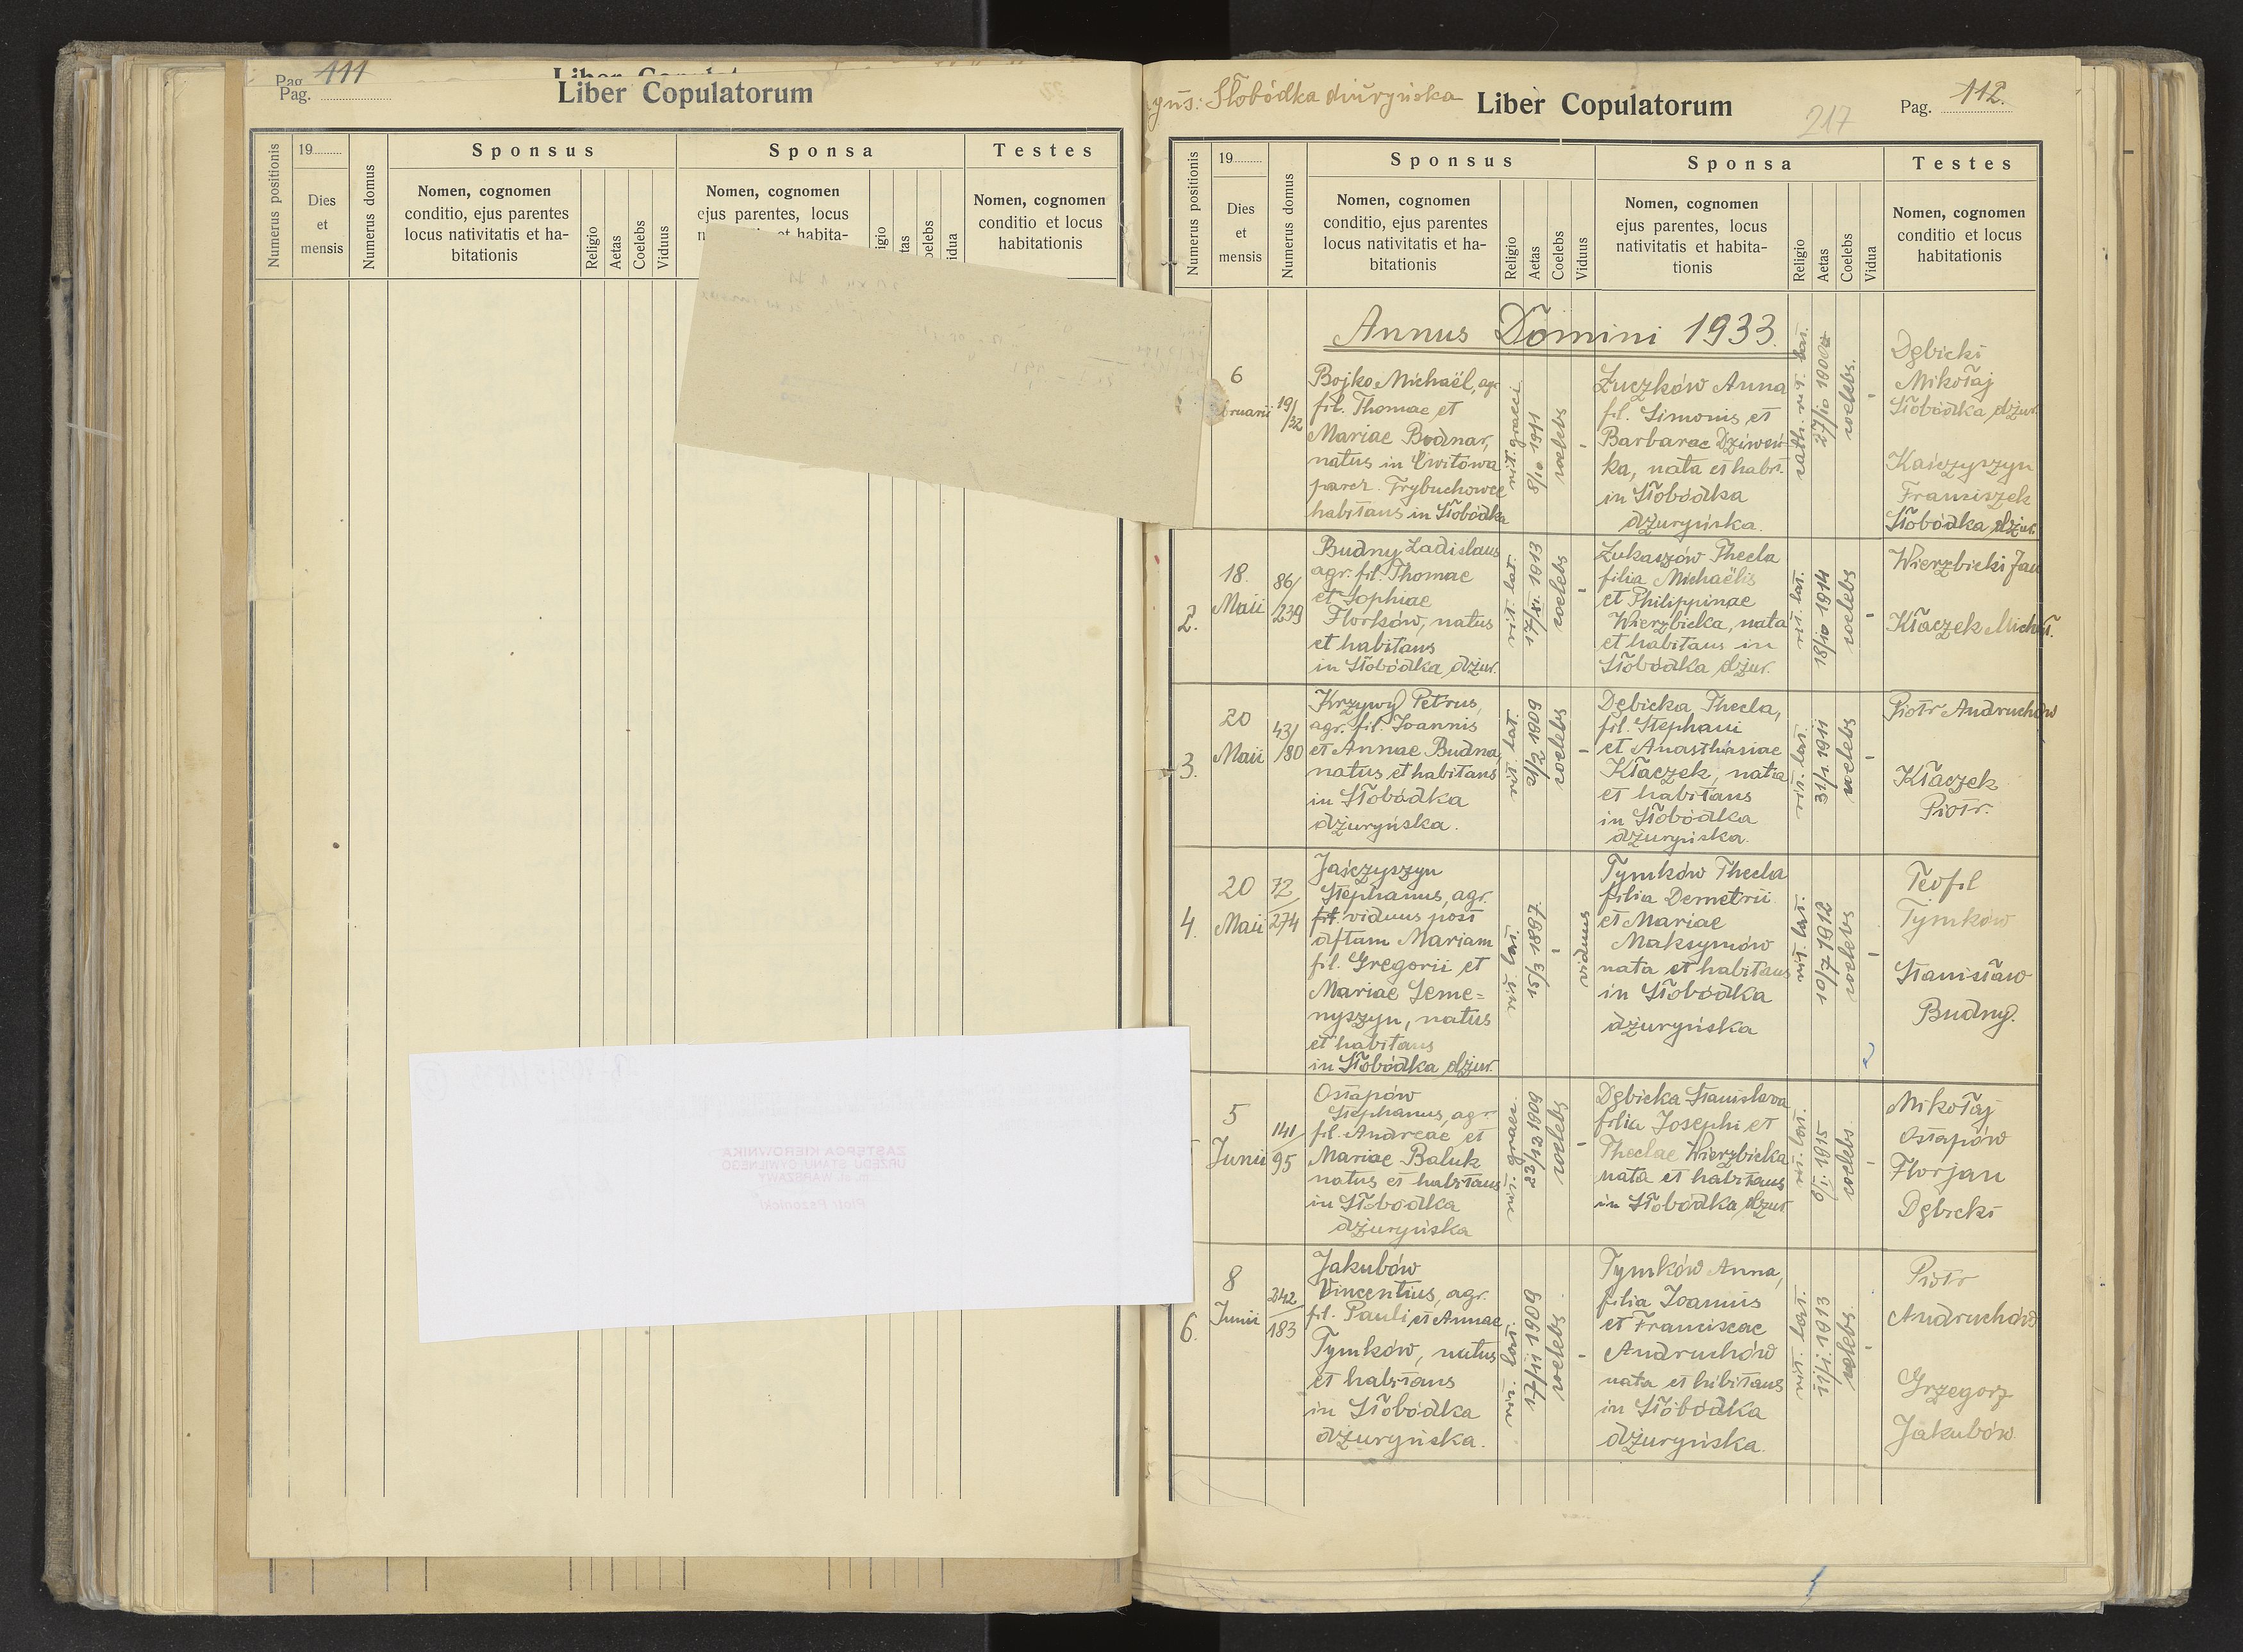 Pag. 111
Pag.
Liber Copulatorum
Numerus positionis
19
Dies
et
mensis
Numerus domus
Sponsus
Nomen, cognomen
conditio, ejus parentes
locus nativitatis et ha-
bitationis
Religio
Aetas
Coelebs
Viduus
Sponsa
Nomen, cognomen
ejus parentes, locus
et habita-
Testes
Nomen, cognomen
conditio et locus
habitationis
ZASTĘPCA KIEROWNIKA
URZĘDU STANU CYWILNEGO
m. st. WARSZAWY
Piotr
Słobódka
Liber Copulatorum
217
Pag. 112.
Numerus positionis
19
Dies
et
mensis
Numerus domus
Sponsus
Nomen, cognomen
conditio, ejus parentes
locus nativitatis et ha-
bitationis
Religio
Aetas
Coelebs
Viduus
Sponsa
Nomen, cognomen
ejus parentes, locus
nativitatis et habita-
tionis
Religio
Aetas
Coelebs
Vidua
Testes
Nomen, cognomen
conditio et locus
habitationis
Annus Domini 1933.
6
bruarii
19/32
Bojko Michaël, agr.
fil. Thomae et
Mariae Bodnar,
natus in Cwitowa
parch. Trybuchowce
habitans in Słobódka
rit. graeci
8/10 1911
coelebs
-
Żuczków Anna
fil. Simonis et
Barbarae Dziweń-
ka, nata et habit.
in Słobódka
dżuryńska.
cath. rit. lat.
27/10
coelebs.
-
Dębicki
Mikołaj
Słobódka dżur.
Kaśczyszyn
Franciszek
Słobódka dżur.
2.
18.
Maii
86/
239
Budny Ladislaus
agr. fil. Thomae
et Sophiae
Florków, natus
et habitans
in Słobódka dżur.
rit. lat.
17/XI. 1913
coelebs
-
Łukaszów Thecla
filia Michaëlis
et Philippinae
Wierzbicka, nata
et habitans in
Słobódka dżur.
rit. lat.
18/10 1914
coelebs
-
Wierzbicki Jan
Kłaczek Michał.
3.
20
Maii
43/
/80
Krzywy Petrus,
agr. fil. Joannis
et Annae Budna
natus et habitans
in Słobódka
dżuryńska.
rit. lat.
2/2 1909
coelebs
-
Dębicka Thecla,
fil. Stephani
et Anasthasiae
Kłaczek, nata
et habitans
in Słobódka
dżuryńska.
rit. lat.
31/1. 1911
coelebs
-
Piotr Andruchów
Kłaczek
Piotr.
4.
20
Maii
72
274
Jaśczyszyn
Stephanus, agr.
fil. viduus post
dftam Mariam
fil. Gregorii et
Mariae Seme=
nyszyn, natus
et habitans
in Słobódka dżur.
rit. lat.
15/3 1897
-
viduus
Tymków Thecla
filia Demetrii
et Mariae
Maksymów
nata et habitans
in Słobódka
dżuryńska
rit. lat.
10/7 1912
coelebs
-
Teofil
Tymków
Stanisław
Budny.
5
Junii
141/
95
Ostapów
Stephanus, agr.
fil. Andreae et
Mariae Baluk
natus et habitans
in Słobódka
dżuryńska
rit. graeci
22/12 1909
coelebs
-
Dębicka Stanislava
filia Josephi et
Theclae Wierzbicka
nata et habitans
in Słobódka dżur.
rit. lat.
6/1. 1915
coelebs.
-
Mikołaj
Ostapów
Florjan
Dębicki
6.
8
Junii
242
183
Jakubów
Vincentius, agr.
fil. Pauli et Annae
Tymków, natus
et habitans
in Słobódka
dżuryńska.
rit. lat.
17/11 1909
coelebs.
-
Tymków Anna,
filia Joannis
et Franciscae
Andruchów
nata et habitans
in Słobódka
dżuryńska.
rit. lat.
11/1. 1913
coelebs.
-
Piotr
Andruchów
Grzegorz
Jakubów